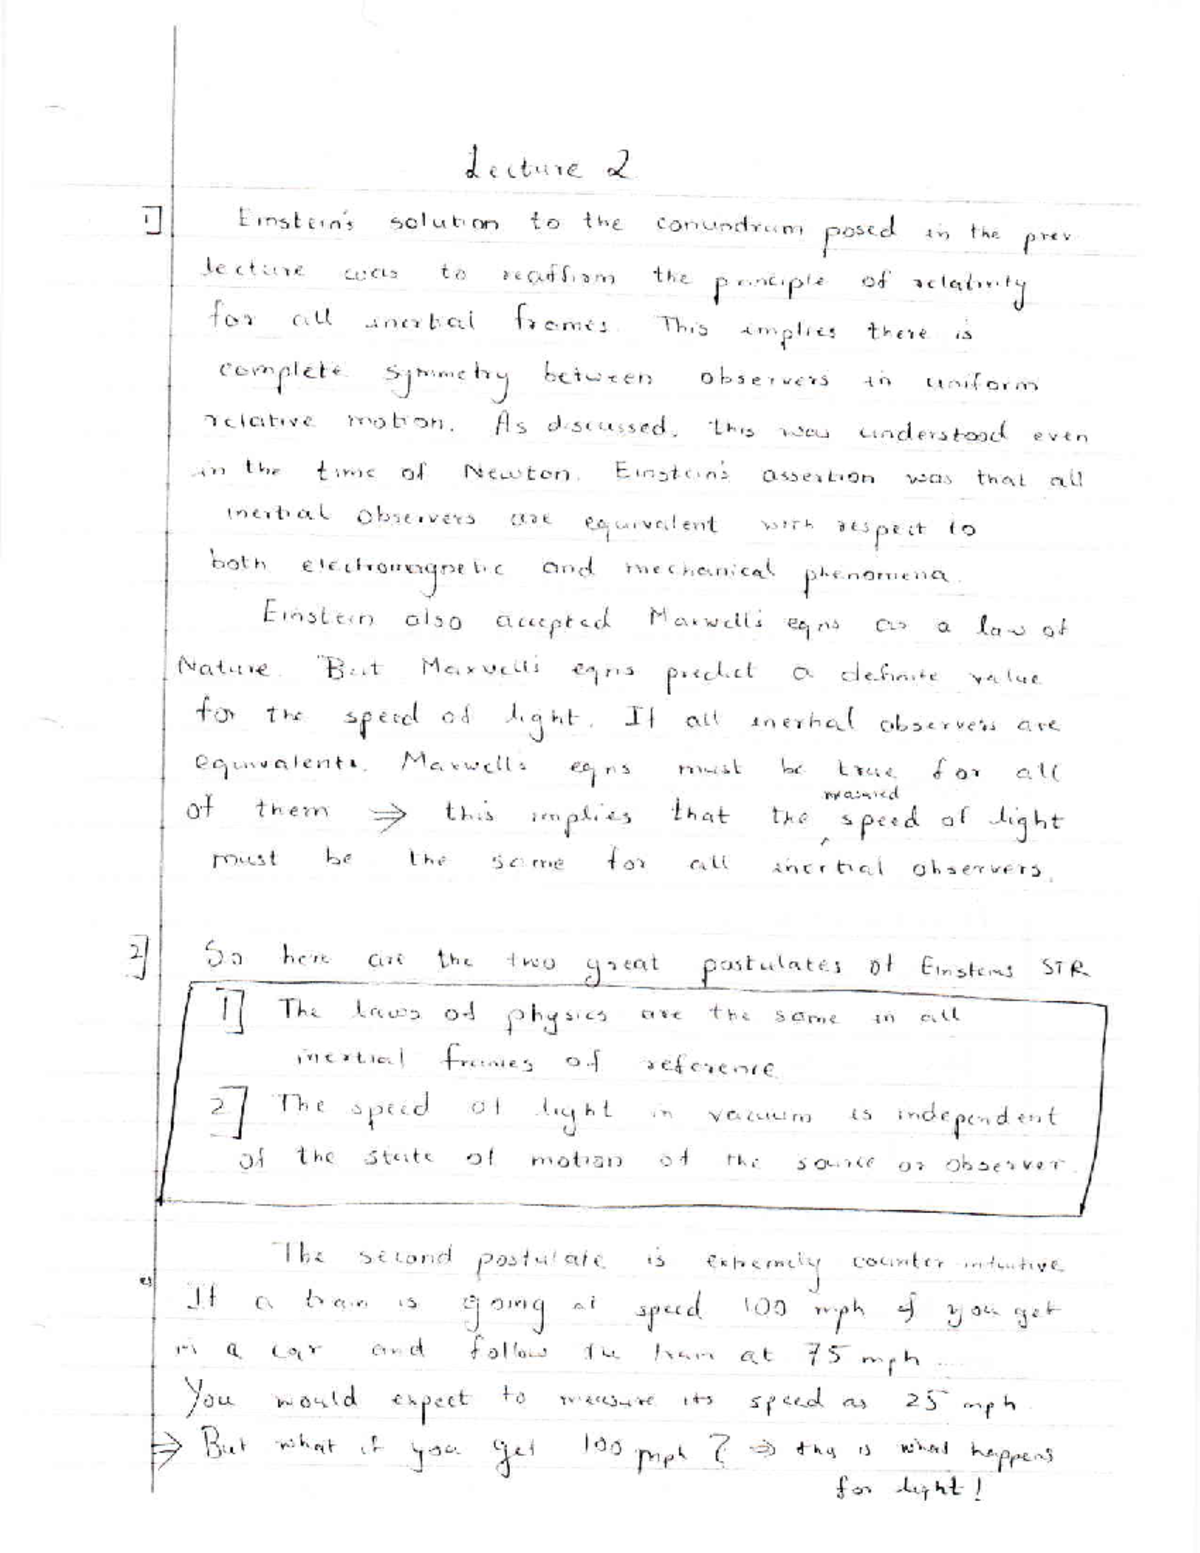 Lecture 2
1] Einstein's solution to the conundrum posed in the prev.
lecture was to reaffirm the principle of relativity
for all inertial frames. This implies there is
complete symmetry between observers in uniform
relative motion. As discussed, this was understood even
in the time of Newton. Einstein's assertion was that all
inertial observers are equivalent with respect to
both electromagnetic and mechanical phenomena.
Einstein also accepted Maxwell's eqns as a law of
Nature. But Maxwell's eqns predict a definite value
for the speed of light. If all inertial observers are
equivalent, Maxwell's eqns must be true for all
of them ⇒ this implies that the measured speed of light
must be the same for all inertial observers.
2] So here are the two great postulates of Einsteins STR
1] The laws of physics are the same in all
inertial frames of reference
2] The speed of light in vacuum is independent
of the state of motion of the source or observer.
The second postulate is extremely counter-intuitive
If a train is going at speed 100 mph & you get
in a car and follow the train at 75 mph ...
You would expect to measure its speed as 25 mph.
⇒ But what if you get 100 mph? ⇒ this is what happens
for light!